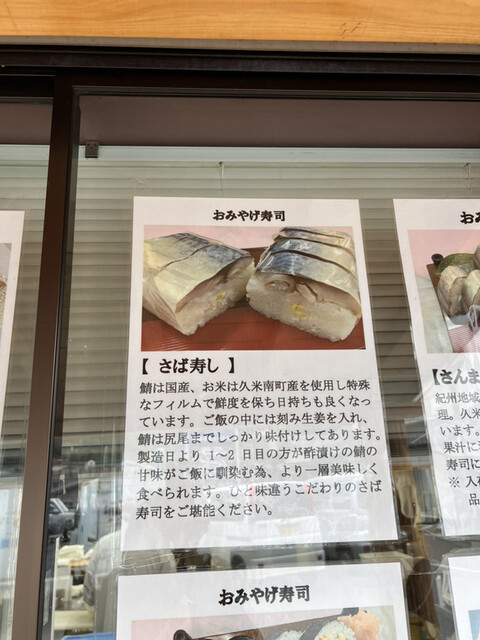 おみやげ寿司
【 さば寿し 】
鯖は国産、お米は久米南町産を使用し特殊
なフィルムで鮮度を保ち日持ちも良くなっ
ています。ご飯の中には刻み生姜を入れ、
鯖は尻尾までしっかり味付けしてあります。
製造日より 1〜2 日目の方が酢漬けの鯖の
甘味がご飯に馴染む為、より一層美味しく
食べられます。ひと味違うこだわりのさば
寿司をご堪能ください。
おみ
【さんま
紀州地域
理。久米
います。
果汁に
寿司に
※ 入
品
おみやげ寿司